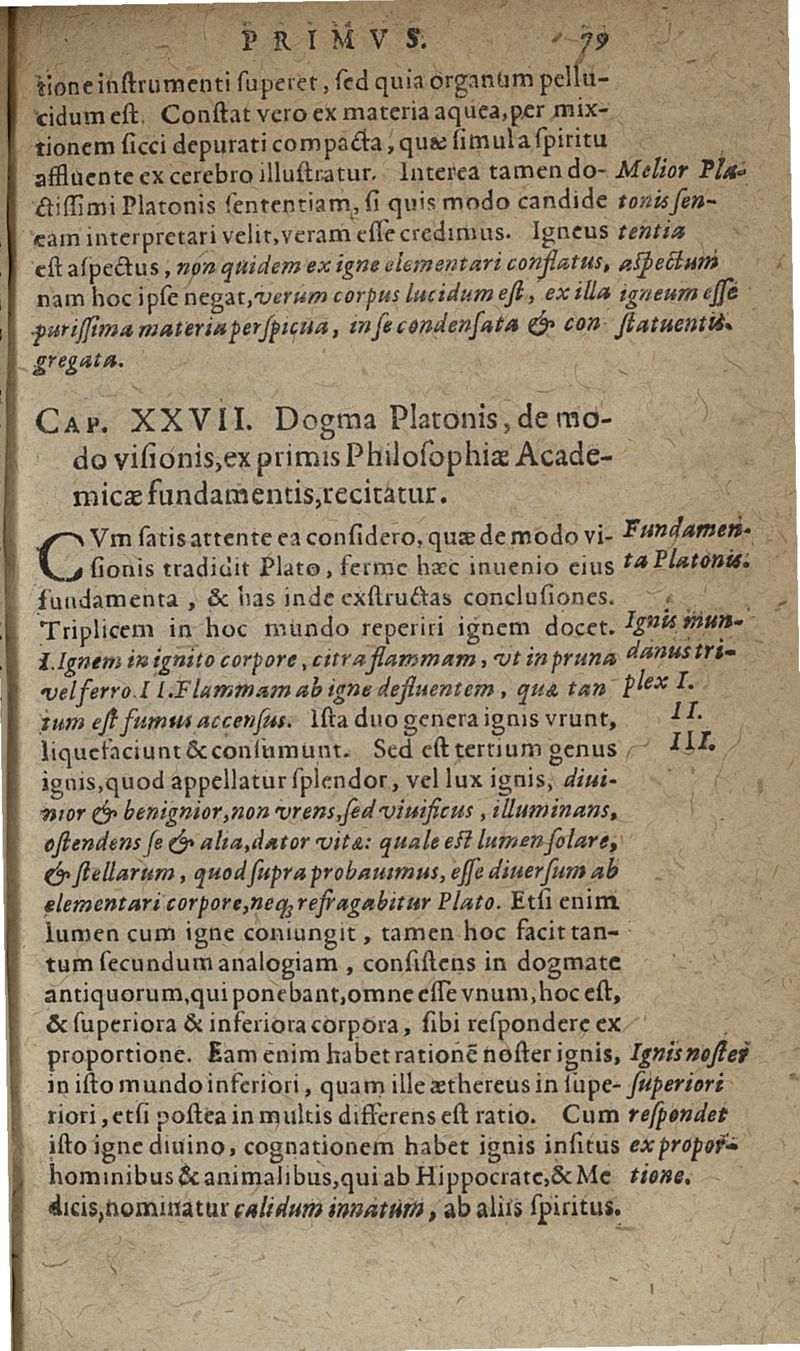 PRIMVS. 79
tione inſtrumenti ſuperet, ſed quia organum pellu-
cidum eſt. Conſtat vero ex materia aquea, per mix-
tionem ſicci depurati compacta, quæ ſimul a ſpiritu
affluente ex cerebro illuſtratur. Interea tamen do-
ctiſſimi Platonis ſententiam, ſi quis modo candide
eam interpretari velit, veram eſſe credimus. Igneus
eſt aſpectus, non quidem ex igne elementari conflatus,
nam hoc ipſe negat, verum corpus lucidum eſt, ex illa
puriſſima materia perſpicua, in ſe condenſata & con-
gregata.
Melior Pla-
tonis ſen-
tentia
aſpectum
igneum eſſe
ſtatuentis.
CAP. XXVII. Dogma Platonis, de mo-
do viſionis, ex primis Philoſophiæ Acade-
micæ fundamentis, recitatur.
CVm ſatis attente ea conſidero, quæ de modo vi-
ſionis tradidit Plato, ferme hæc inuenio eius
fundamenta, & has inde exſtructas concluſiones.
Triplicem in hoc mundo reperiri ignem docet.
I. Ignem in ignito corpore, citra flammam, vt in pruna
vel ferro. II. Flammam ab igne defluentem, quæ tan
tum eſt fumus accenſus. Iſta duo genera ignis vrunt,
liquefaciunt & conſumunt. Sed eſt tertium genus
ignis, quod appellatur ſplendor, vel lux ignis, diui-
nior & benignior, non vrens, ſed viuificus, illuminans,
oſtendens ſe & alia, dator vitæ: quale eſt lumen ſolare,
& ſtellarum, quod ſupra probauimus, eſſe diuerſum ab
elementari corpore, neq; refragabitur Plato. Etſi enim
lumen cum igne coniungit, tamen hoc facit tan-
tum ſecundum analogiam, conſiſtens in dogmate
antiquorum, qui ponebant, omne eſſe vnum, hoc eſt,
& ſuperiora & inferiora corpora, ſibi reſpondere ex
proportione. Eam enim habet rationē noſter ignis,
in iſto mundo inferiori, quam ille æthereus in ſupe-
riori, etſi poſtea in multis differens eſt ratio. Cum
iſto igne diuino, cognationem habet ignis inſitus
hominibus & animalibus, qui ab Hippocrate, & Me
dicis, nominatur calidum innatum, ab aliis ſpiritus.
Fundamen-
ta Platonis.
Ignis mun-
danus tri-
plex I.
II.
III.
Ignis noſter
ſuperiori
reſpondet
ex propor-
tione.